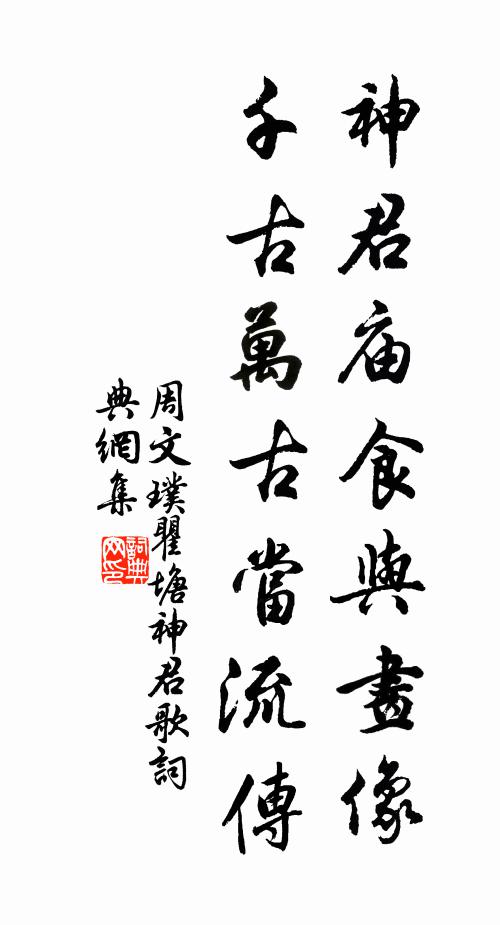 神君庙食與畫像
千古萬古當流傳
周文璞瞿塘神君歌詞
典網集
詞典
网印